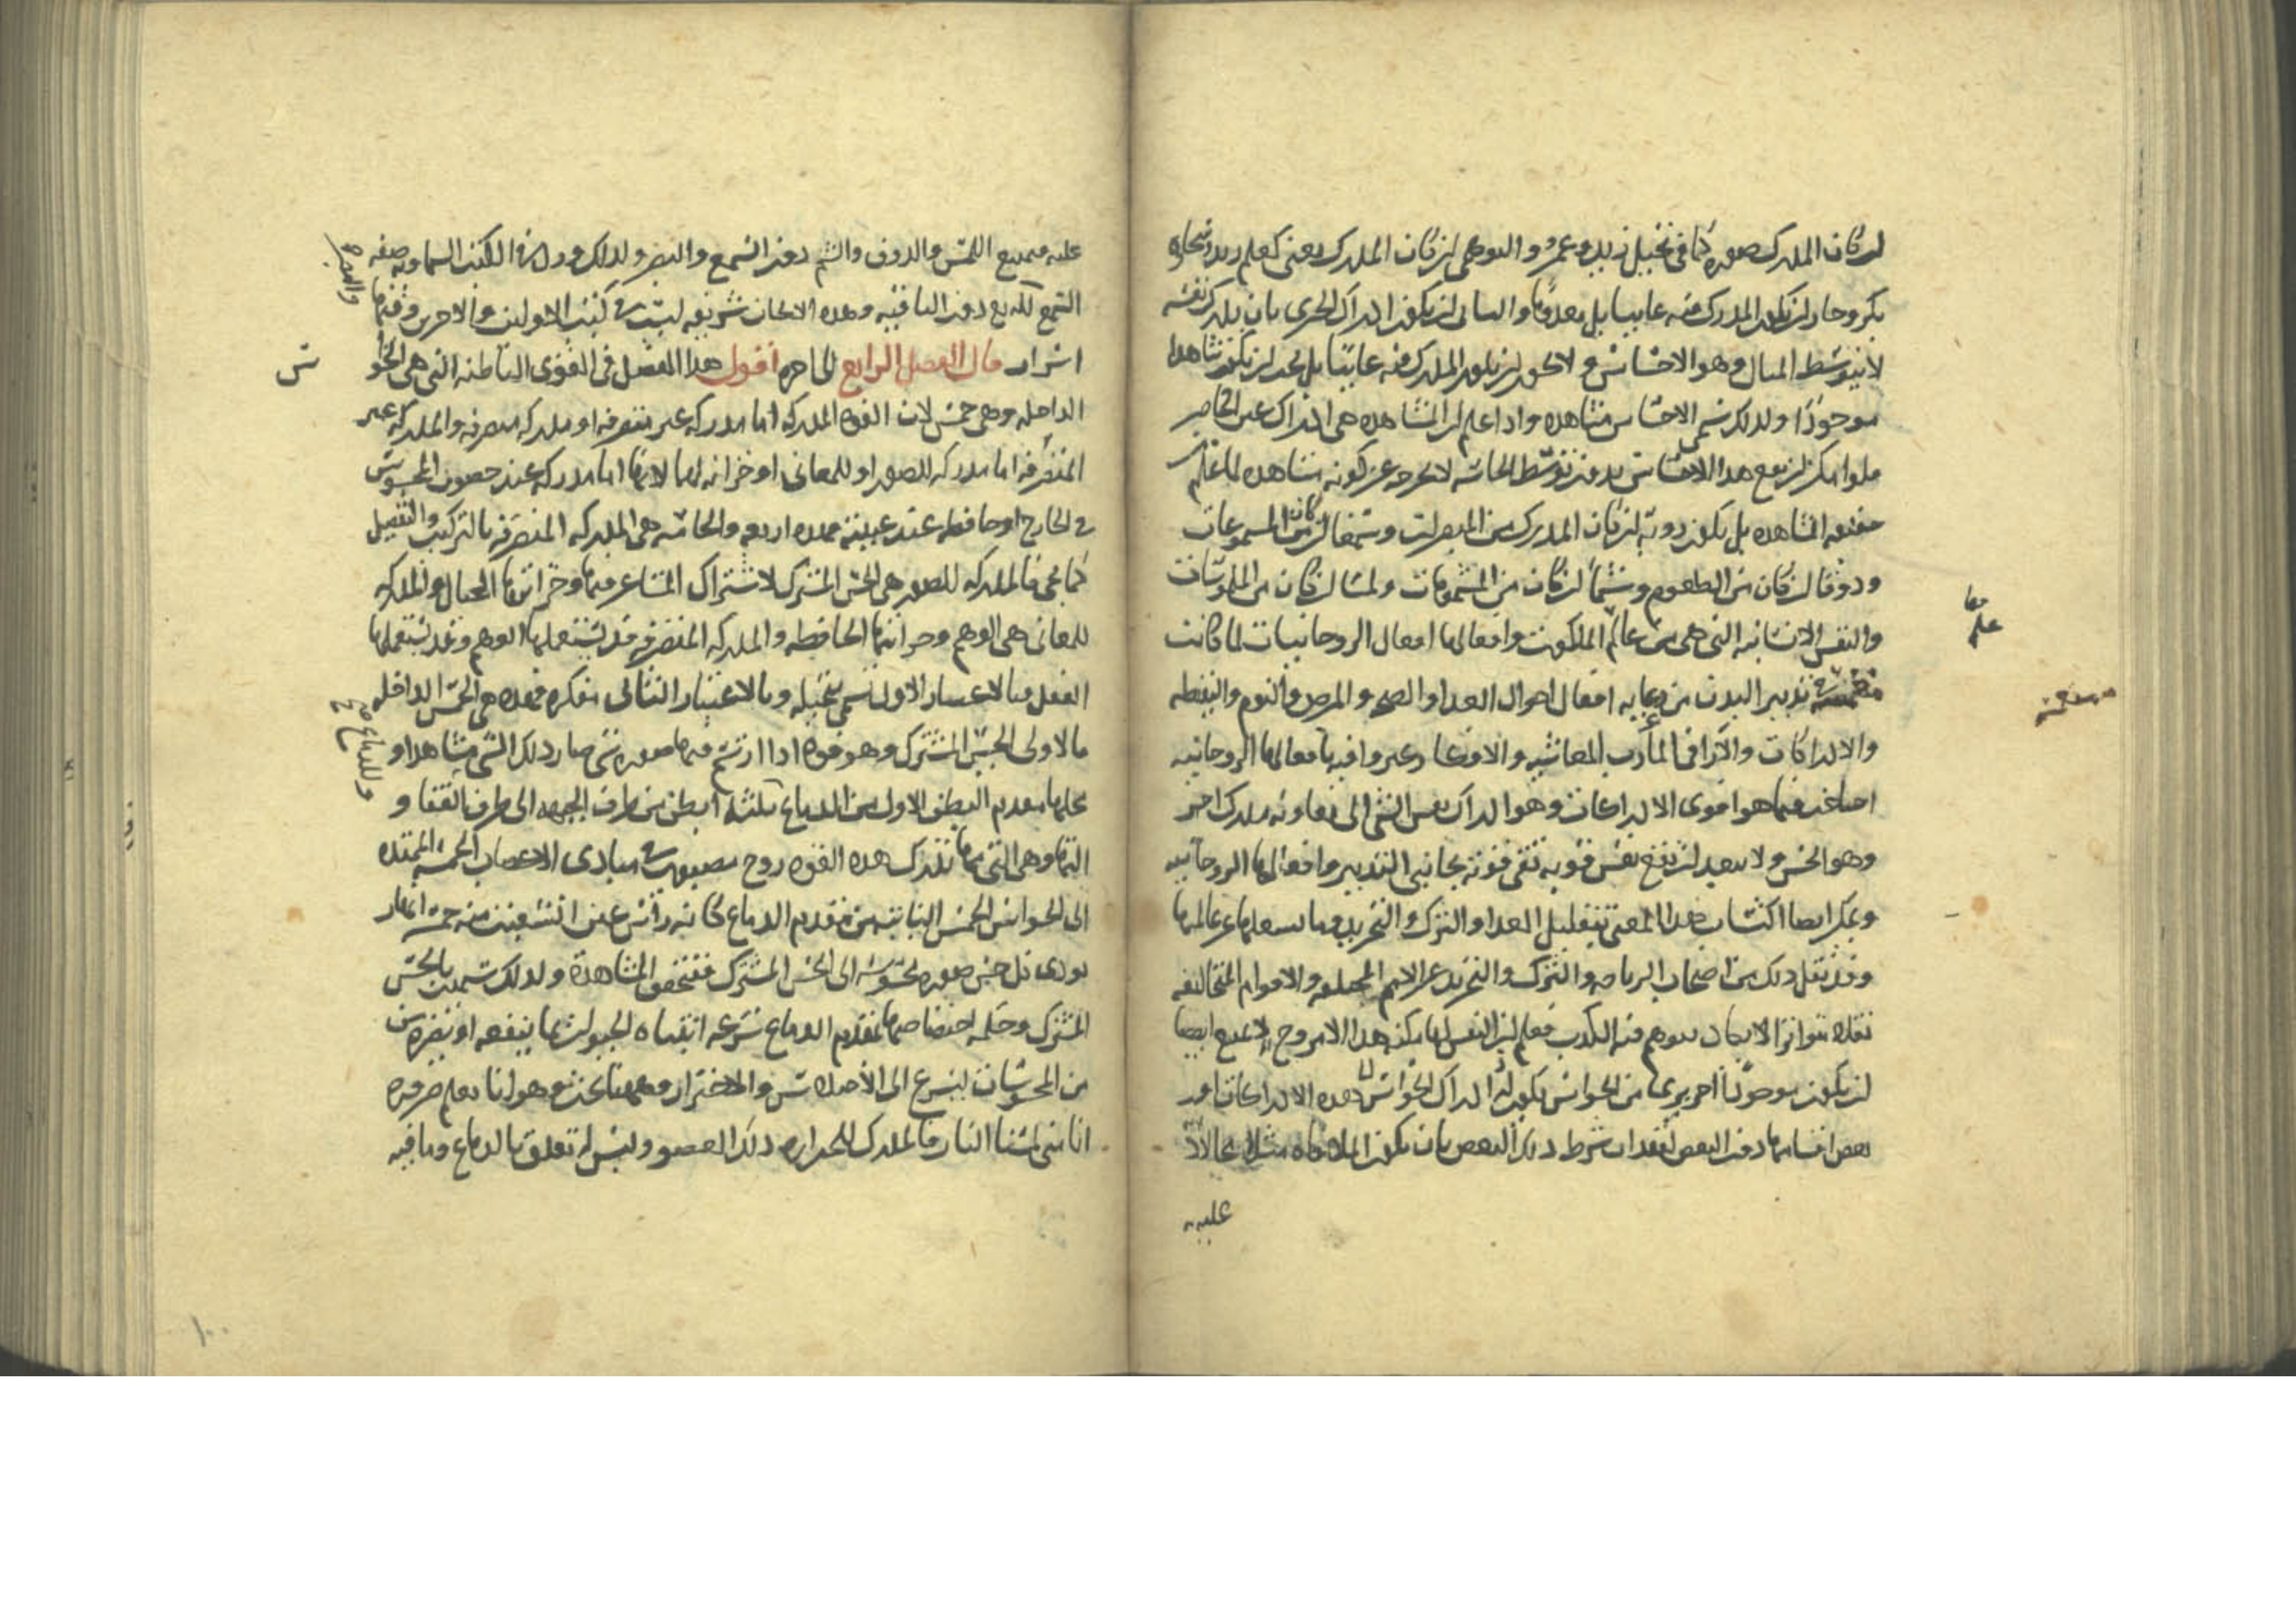 ان كان المدرك صوره كما فى تخيل زيد وعمرو والتوهمى ان كان المدرك معنى كعلم زيد وشجاعه
بكر وجاز ان يكون المدرك منه غايبا بل معدوما والثانى ان يكون ادراك الجزى بان يدرك نفسه
لا بتوسط المثال وهو الاحساس ولا يجوز ان يكون المدرك منه غايبا بل يجب ان يكون مشاهدا
موجودا ولذلك سمى الاحساس مشاهده واذا علم ان المشاهده هى ادراك عين الحاضر
فلو امكن ان يقع هذا الاحساس بدون توسط الحاسه لا يخرج عن كونه مشاهده لما علم من
حقيقه المشاهده بل يكون رويه ان كان المدرك من المبصرات وسمعا ان كان من المسموعات
وذوقا ان كان من الطعوم وشما ان كان من المشمومات ولمسا ان كان من الملموسات
والنفس الانسانيه التى هى من عالم الملكوت وافعالها افعال الروحانيات لما كانت
تدبير البدن من رعايه افعال احوال الغذا والصحه والمرض والنوم واليقظه
والادراكات والآرا فى المآرب المعاشيه والاوضاع وغير وافيه بافعالها الروحانيه
احتاجت فيما هو اقوى الادراكات وهو ادراك نفس الشى الى معاونه مدرك اخر
وهو الحس ولا يبعد ان يقع نفس قويه تفى قوته بجانبى التدبير وافعالها الروحانيه
ويمكن ايضا اكتساب هذا المعنى بتقليل الغذا والترك والتجريد وما يشغلها عن عالمها
وقد نقل ذلك من اصحاب الرياضه والترك والتجريد عن الامم المختلفه والاقوام المتخالفه
نقلا متواترا لا يكاد يتوهم فيه الكذب فعلم ان النفس لها يمكن هذا الامر وح لا يمتنع ايضا
ان يكون موجودا اخر برى من الحواس يكون له ادراك الحواس هذه الادراكات او
بعض اقسامها دون البعض لفقدان شرط ذلك البعض بان يكون الملاقاه مثلا محالا
عليه
معا
علم
عليه فيمتنع اللمس والذوق والشم دون السمع والبصر ولذلك ورد فى الكتب السماويه صفه
السمع لله تع دون الباقيه وهذه الابحاث شريفه ليست فى كتب الاولين والاخرين وفيها
والبصر
اسرار قال الفصل الرابع الى اخره اقول هذا الفصل فى القوى الباطنه التى هى الحواس
الداخله وهى خمس لان القوه المدركه اما مدركه غير متصرفه او مدركه متصرفه والمدركه غير
المتصرفه اما مدركه للصور او للمعانى او خزانه لهما لانها اما مدركه عند حصول المحسوس
فى الخارج او حافظه عند غيبته فهذه اربعه والخامسه هى المدركه المتصرفه بالتركيب والتفصيل
كما يجى فالمدركه للصور هى الحس المشترك لاشتراك المشاعر فيها وخزانتها الخيال والمدركه
للمعانى هى الوهم وخزانتها الحافظه والمدركه المتصرفه قد يستعملها الوهم وقد يستعملها
العقل فبالاعتبار الاول تسمى متخيله وبالاعتبار الثانى مفكره فهذه هى الحس الداخله
فالاولى الحس المشترك وهو قوه اذا ارتسم فيها صوره شى صار ذلك الشى مشاهدا و
محلها مقدم البطن الاول من الدماغ ثلثه ابطن من طرف الجبهه الى طرف القفا و
وللدماغ
التها وهى التى بها تدرك هذه القوه روح مصبوب فى مبادى الاعصاب الخمسه الممتده
الى الحواس الخمس النابته من مقدم الدماغ كانه رأس عين انشعبت منه خمسه انهار
يودى كل حس صوره محسوسه الى الحس المشترك فتتحقق المشاهده ولذلك سميت بالحس
المشترك وحكمه اختصاصها بمقدم الدماغ سرعه انتباه الحيوان بما ينفعه او يضره من
من المحسوسات ليسرع الى الاصلاح والاحتراز وههنا بحث وهو انا نعلم ضروره
انا متى لمسنا النار فالمدرك للحراره ذلك العضو وليس له تعلق بالدماغ وما فيه
١٠٠